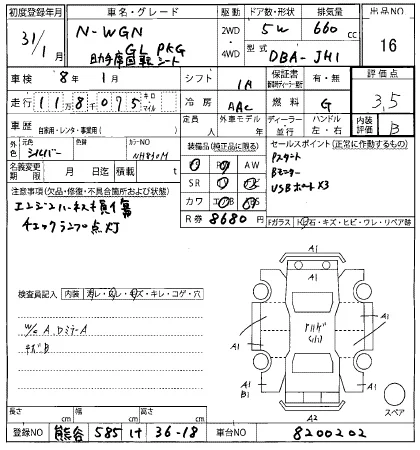 初度登録年月 車名・グレード 駆動 ドア数・形状 排気量 出品NO
31/1 N-WGN 2WD 5W 660 cc 16
G L PKG 4WD 型式 DBA-JH1
助手席回転シート
車検 8年 1月 シフト IA 保証書 有・無 評価点
走行 11万8千075 キロ マイル 冷房 AAC 燃料 G 3,5
車歴 自家用・レンタ・事業用( ) 定員 人 外車モデル 年 ディーラー 並行 ハンドル 左・右 内装評価 B
元色 シルバー 色替 カラーNO NH830M 装備品(純正品に限る) セールスポイント(正常に動作するもの)
名義変更期限 月 日迄 積載 SR ナビ Pスタート
注意事項(欠品・修復・不具合箇所および状態) カワ Bモニター
エンジンハーネスキズ有 USBポートX3
チェックランプ点灯 R券 8680円
Fガラス 石・キズ・ヒビ・ワレ・リペア跡
検査員記入 内装 キレ・コゲ・穴
W/c A.ロミラーA
チズB
A1
A1
A1
A1
A1
B1
A1
A2
スペア
長さ cm 幅 cm 高さ cm
登録NO 熊谷 585 け 36-18 車台NO 8200202